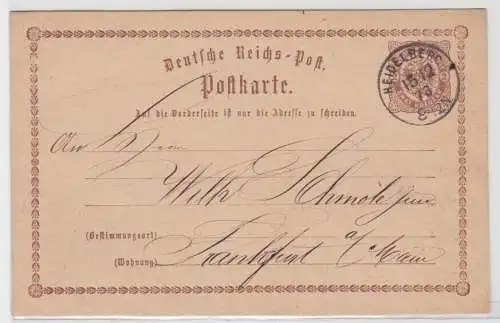 Deutsche Reichs-Post.
Postkarte.
HEIDELBERG
15 12
73
8-9V
Auf die Vorderseite ist nur die Adresse zu schreiben.
An Herrn
Wilh. Schmöle jun
(Bestimmungsort)
Frankfurt a/Main
(Wohnung)